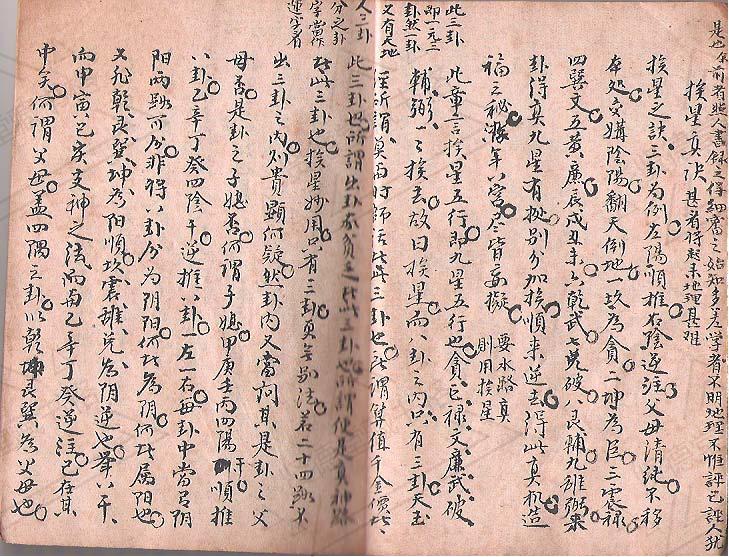 是也余前看照人書錄之得細審之始知多差學者不明地理不惟誣己誣人猶
甚者將起未地理甚难
挨星真决
挨星之訣三卦为例左陽順推右陰逆註父母清純不移
在処交媾陰陽翻天倒地一坎為貪二坤為臣三震禄
四巽文五黄廉辰戌丑未六乾武七兌破八艮輔九離弼来
卦得真九星有挨别分加挨順来逆去得此真机造
福之秘
年八宮尽皆妄擬
要水路真
則用挨星
此章言挨星五行即九星五行也貪巨禄文廉武破
輔弼一一挨去故曰挨星而八卦之内只有三卦天玉
經所謂莫向时師話此三卦也所謂筭值千金價此
此三卦
即一元三
卦然一卦
又有天地
人三卦
此三卦也所謂出卦家貧乏此三卦也所謂便是真神路
分之卦
字當作
運字看
此三卦也挨星妙用只有三卦更無别法若二十四路不
出三卦之内则貴顯何疑然卦内又當詞其是卦之父
母否是卦之子媳否何謂子媳甲庚壬丙四陽干順推
八卦乙辛丁癸四陰干逆推八卦一左一右每卦中當有陰
阳两路可分非将八卦分为阴阳何此為阴何此屬阳也
又非乾艮巽坤為阳順坎震離兌為阴逆也举八干
而甲寅巳亥支神之法而南乙辛丁癸逆注已在其
中矣何謂父母盖四隅之卦以乾坤艮巽為父母也